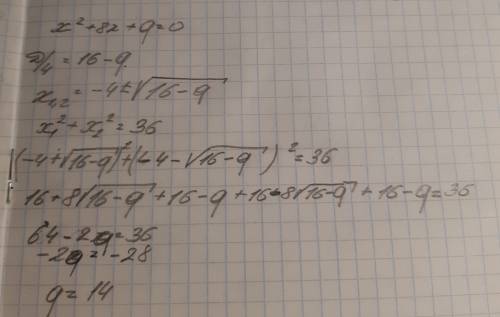 x² + 8x + q = 0
D/4 = 16 - q.
x₁,₂ = -4 ± √(16 - q)
x₁² + x₁² = 36
(-4 + √(16 - q))² + (-4 - √(16 - q))² = 36
16 + 8√(16 - q) + 16 - q + 16 - 8√(16 - q) + 16 - q = 36
64 - 2q = 36
-2q = -28
q = 14